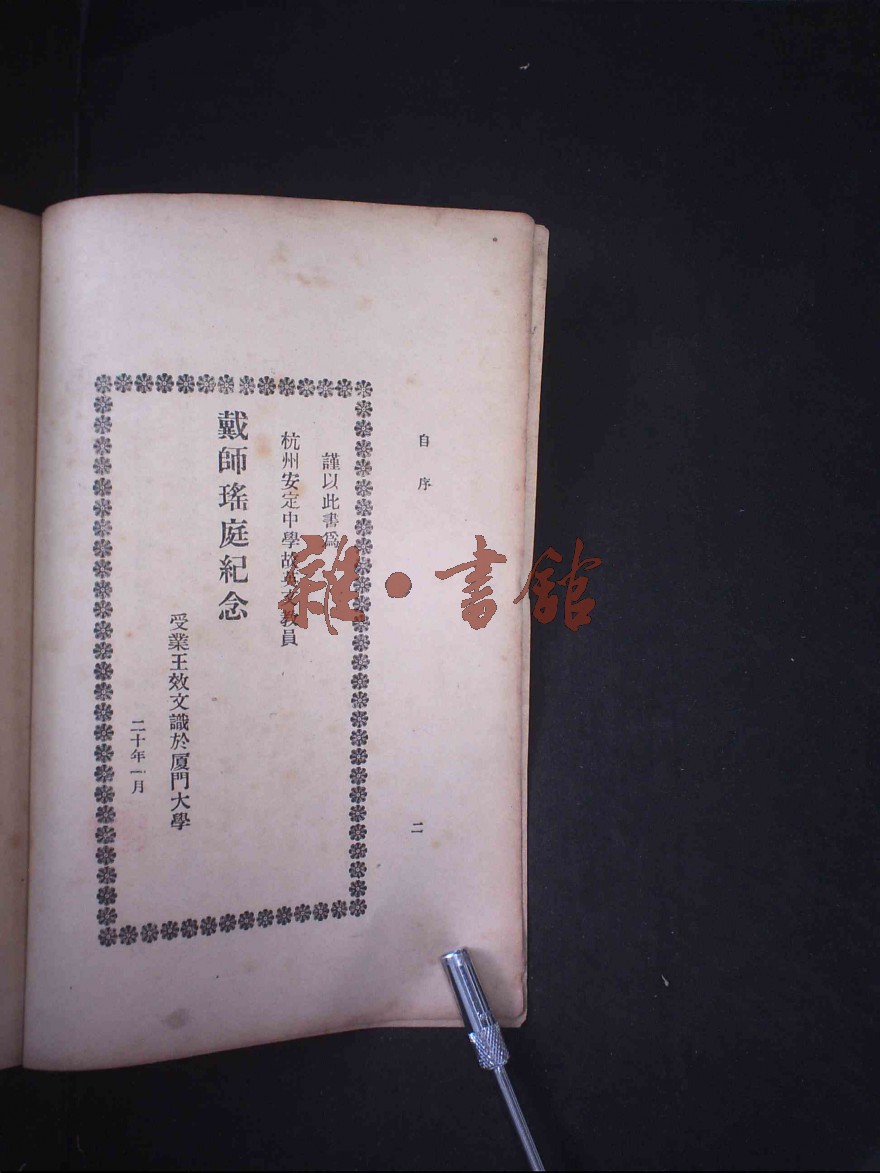 自序
二
謹以此書爲
杭州安定中學故英文教員
戴師瑤庭紀念
受業王效文識於厦門大學
二十年一月
雜·書館